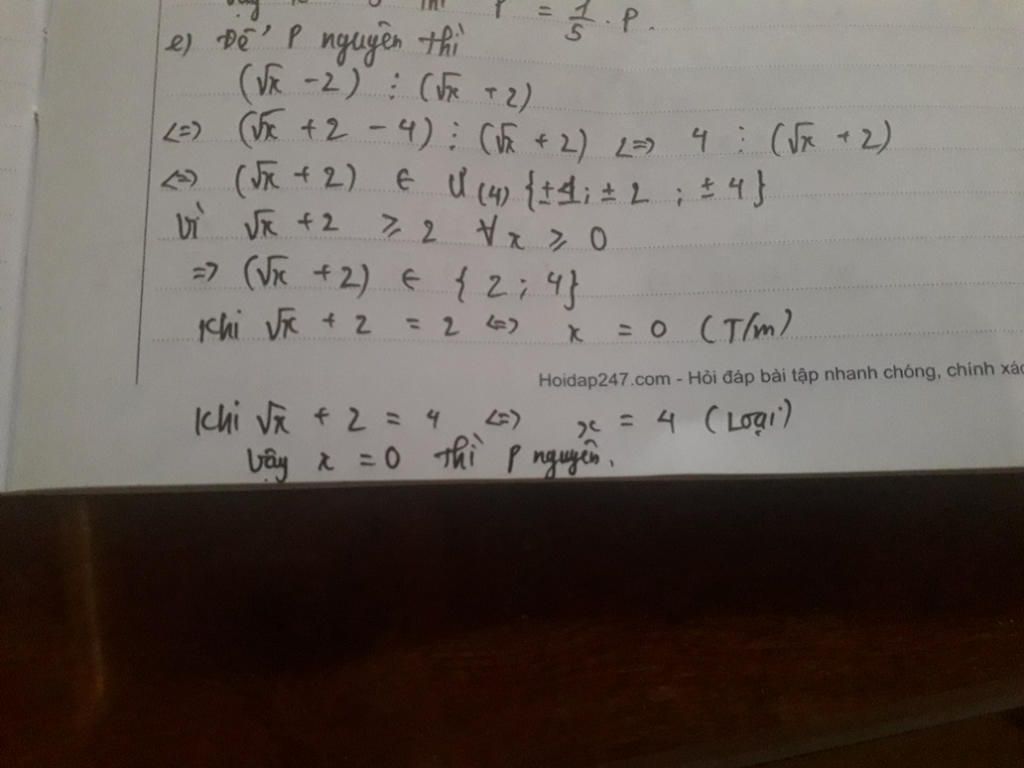 thì P = 1/5 . P.
e) Để P nguyên thì
(√x - 2) ⋮ (√x + 2)
<=> (√x + 2 - 4) ⋮ (√x + 2) <=> 4 ⋮ (√x + 2)
<=> (√x + 2) ∈ Ư(4) {±1; ±2 ; ±4}
Vì √x + 2 ≥ 2 ∀x ≥ 0
=> (√x + 2) ∈ {2; 4}
Khi √x + 2 = 2 <=> x = 0 (T/m)
Hoidap247.com - Hỏi đáp bài tập nhanh chóng, chính xác
Khi √x + 2 = 4 <=> x = 4 (Loại)
Vậy x = 0 thì P nguyên.